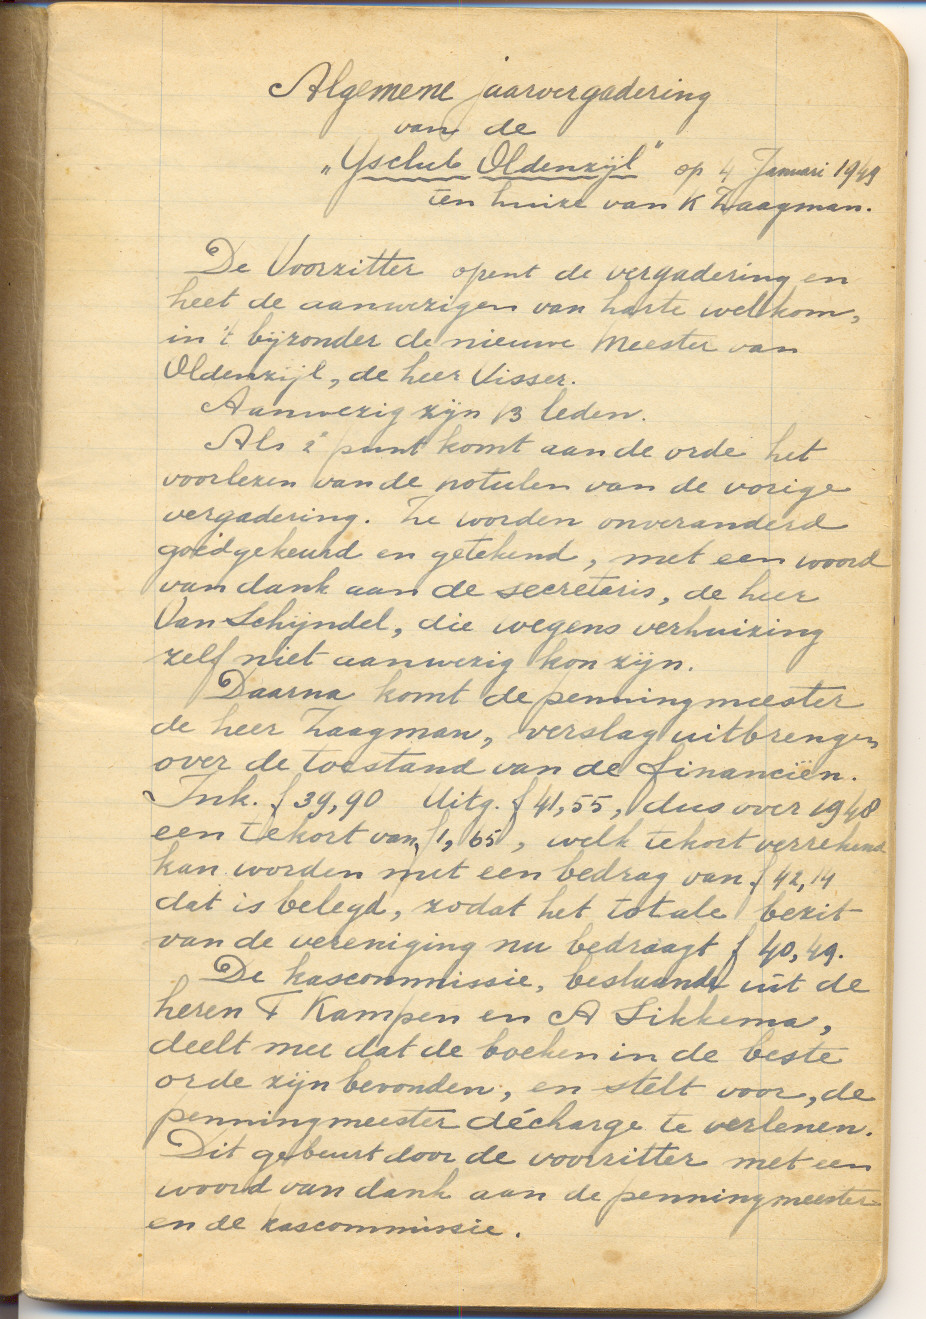 Algemene jaarvergadering
van de
„Ysclub Oldenzijl" op 4 Januari 1949
ten huize van K Zaagman.
De Voorzitter opent de vergadering en
heet de aanwezigen van harte welkom,
in 't bijzonder de nieuwe Meester van
Oldenzijl, de heer Visser.
Aanwezig zijn 13 leden.
Als 2e punt komt aan de orde het
voorlezen van de notulen van de vorige
vergadering. Ze worden onveranderd
goedgekeurd en getekend, met een woord
van dank aan de secretaris, de heer
Van Schijndel, die wegens verhuizing
zelf niet aanwezig kon zijn.
Daarna komt de penningmeester
de heer Zaagman, verslag uitbrengen
over de toestand van de financiën.
Ink. f 39,90 Uitg. f 41,55, dus over 1948
een tekort van f 1,65, welk tekort verrekend
kan worden met een bedrag van f 42,14
dat is belegd, zodat het totale bezit
van de vereniging nu bedraagt f 40,49.
De kascommissie, bestaande uit de
heren F Kampen en A Sikkema,
deelt mee dat de boeken in de beste
orde zijn bevonden, en stelt voor, de
penningmeester décharge te verlenen.
Dit gebeurt door de voorzitter met een
woord van dank aan de penningmeester
en de kascommissie.